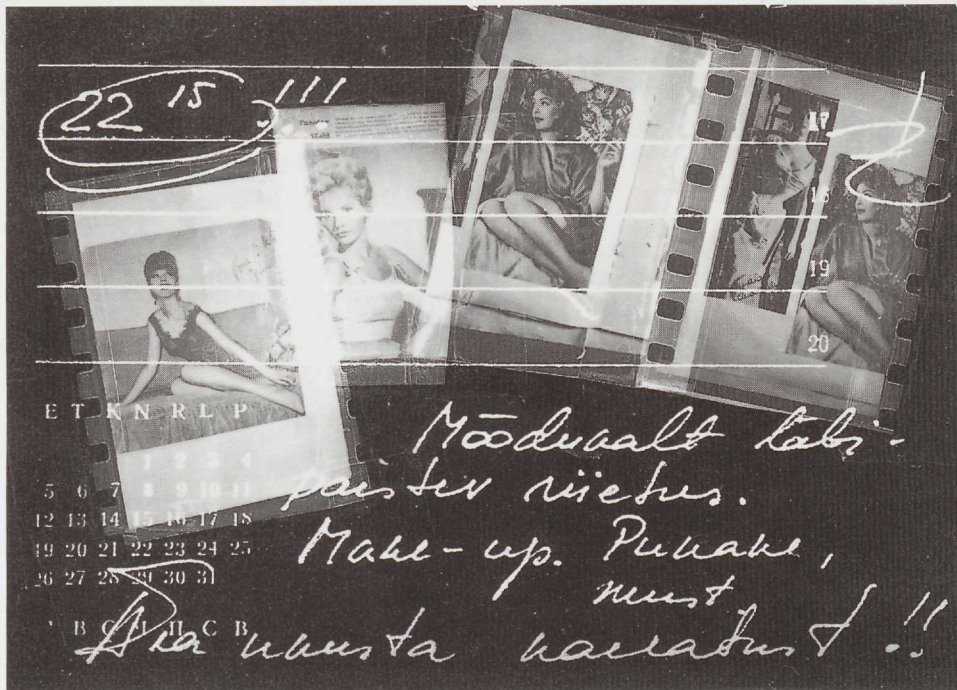 22 15 !!!
17
18
19
20
E T K N R L P
1 2 3 4
5 6 7 8 9 10 11
12 13 14 15 16 17 18
19 20 21 22 23 24 25
26 27 28 29 30 31
В С П П С В
Mõõdukalt läbi-
paistev riietus.
Make-up. Punane,
must.
Ära unusta naeratust!!